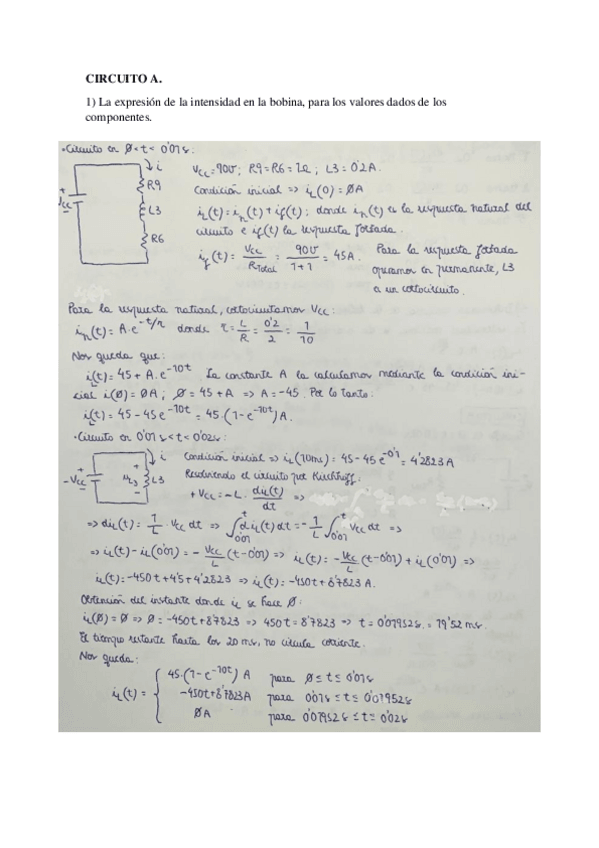 CIRCUITO A.
1) La expresión de la intensidad en la bobina, para los valores dados de los
componentes.
·Circuito en 0<t<0'01s:
Vcc=90V; R9=R6=1Ω; L3=0'2A.
Condición inicial => iL(0)=0A
iL(t)=in(t)+if(t); donde in(t) es la respuesta natural del
circuito e if(t) la respuesta forzada.
if(t)= Vcc/RTotal = 90V/1+1 = 45A. Para la respuesta forzada
operamos en permanente, L3
a un cortocircuito.
+ Vcc - i R9 L3 R6
Para la respuesta natural, cortocircuitamos Vcc:
in(t)=A·e^-t/τ donde τ=L/R=0'2/2=1/10
Nos queda que:
iL(t)=45+A·e^-10t La constante A la calculamos mediante la condición ini-
cial i(0)=0A; 0=45+A => A=-45. Por lo tanto:
iL(t)=45-45e^-10t=45·(1-e^-10t)A.
·Circuito en 0'01s<t<0'02s:
Condición inicial => iL(10ms)=45-45e^-0'1=4'2823A
Resolviendo el circuito por Kirchhoff:
+Vcc=-L·diL(t)/dt =>
-Vcc + i L3 -
=> diL(t)=1/L·Vcc dt => ∫0'01^t diL(t)dt=-1/L∫0'01^t Vcc dt =>
=> iL(t)-iL(0'01)=-Vcc/L(t-0'01) => iL(t)=-Vcc/L(t-0'01)+iL(0'01) =>
iL(t)=-450t+4'5+4'2823 => iL(t)=-450t+8'7823A.
Obtención del instante donde iL se hace 0:
iL(0)=0 => 0=-450t+8'7823 => 450t=8'7823 => t=0'01952s.=19'52ms.
El tiempo restante hasta los 20ms, no circula corriente.
Nos queda:
45·(1-e^-10t)A para 0≤t≤0'01s
iL(t)= -450t+8'7823A para 0'01s≤t≤0'01952s
0A para 0'01952s≤t≤0'02s